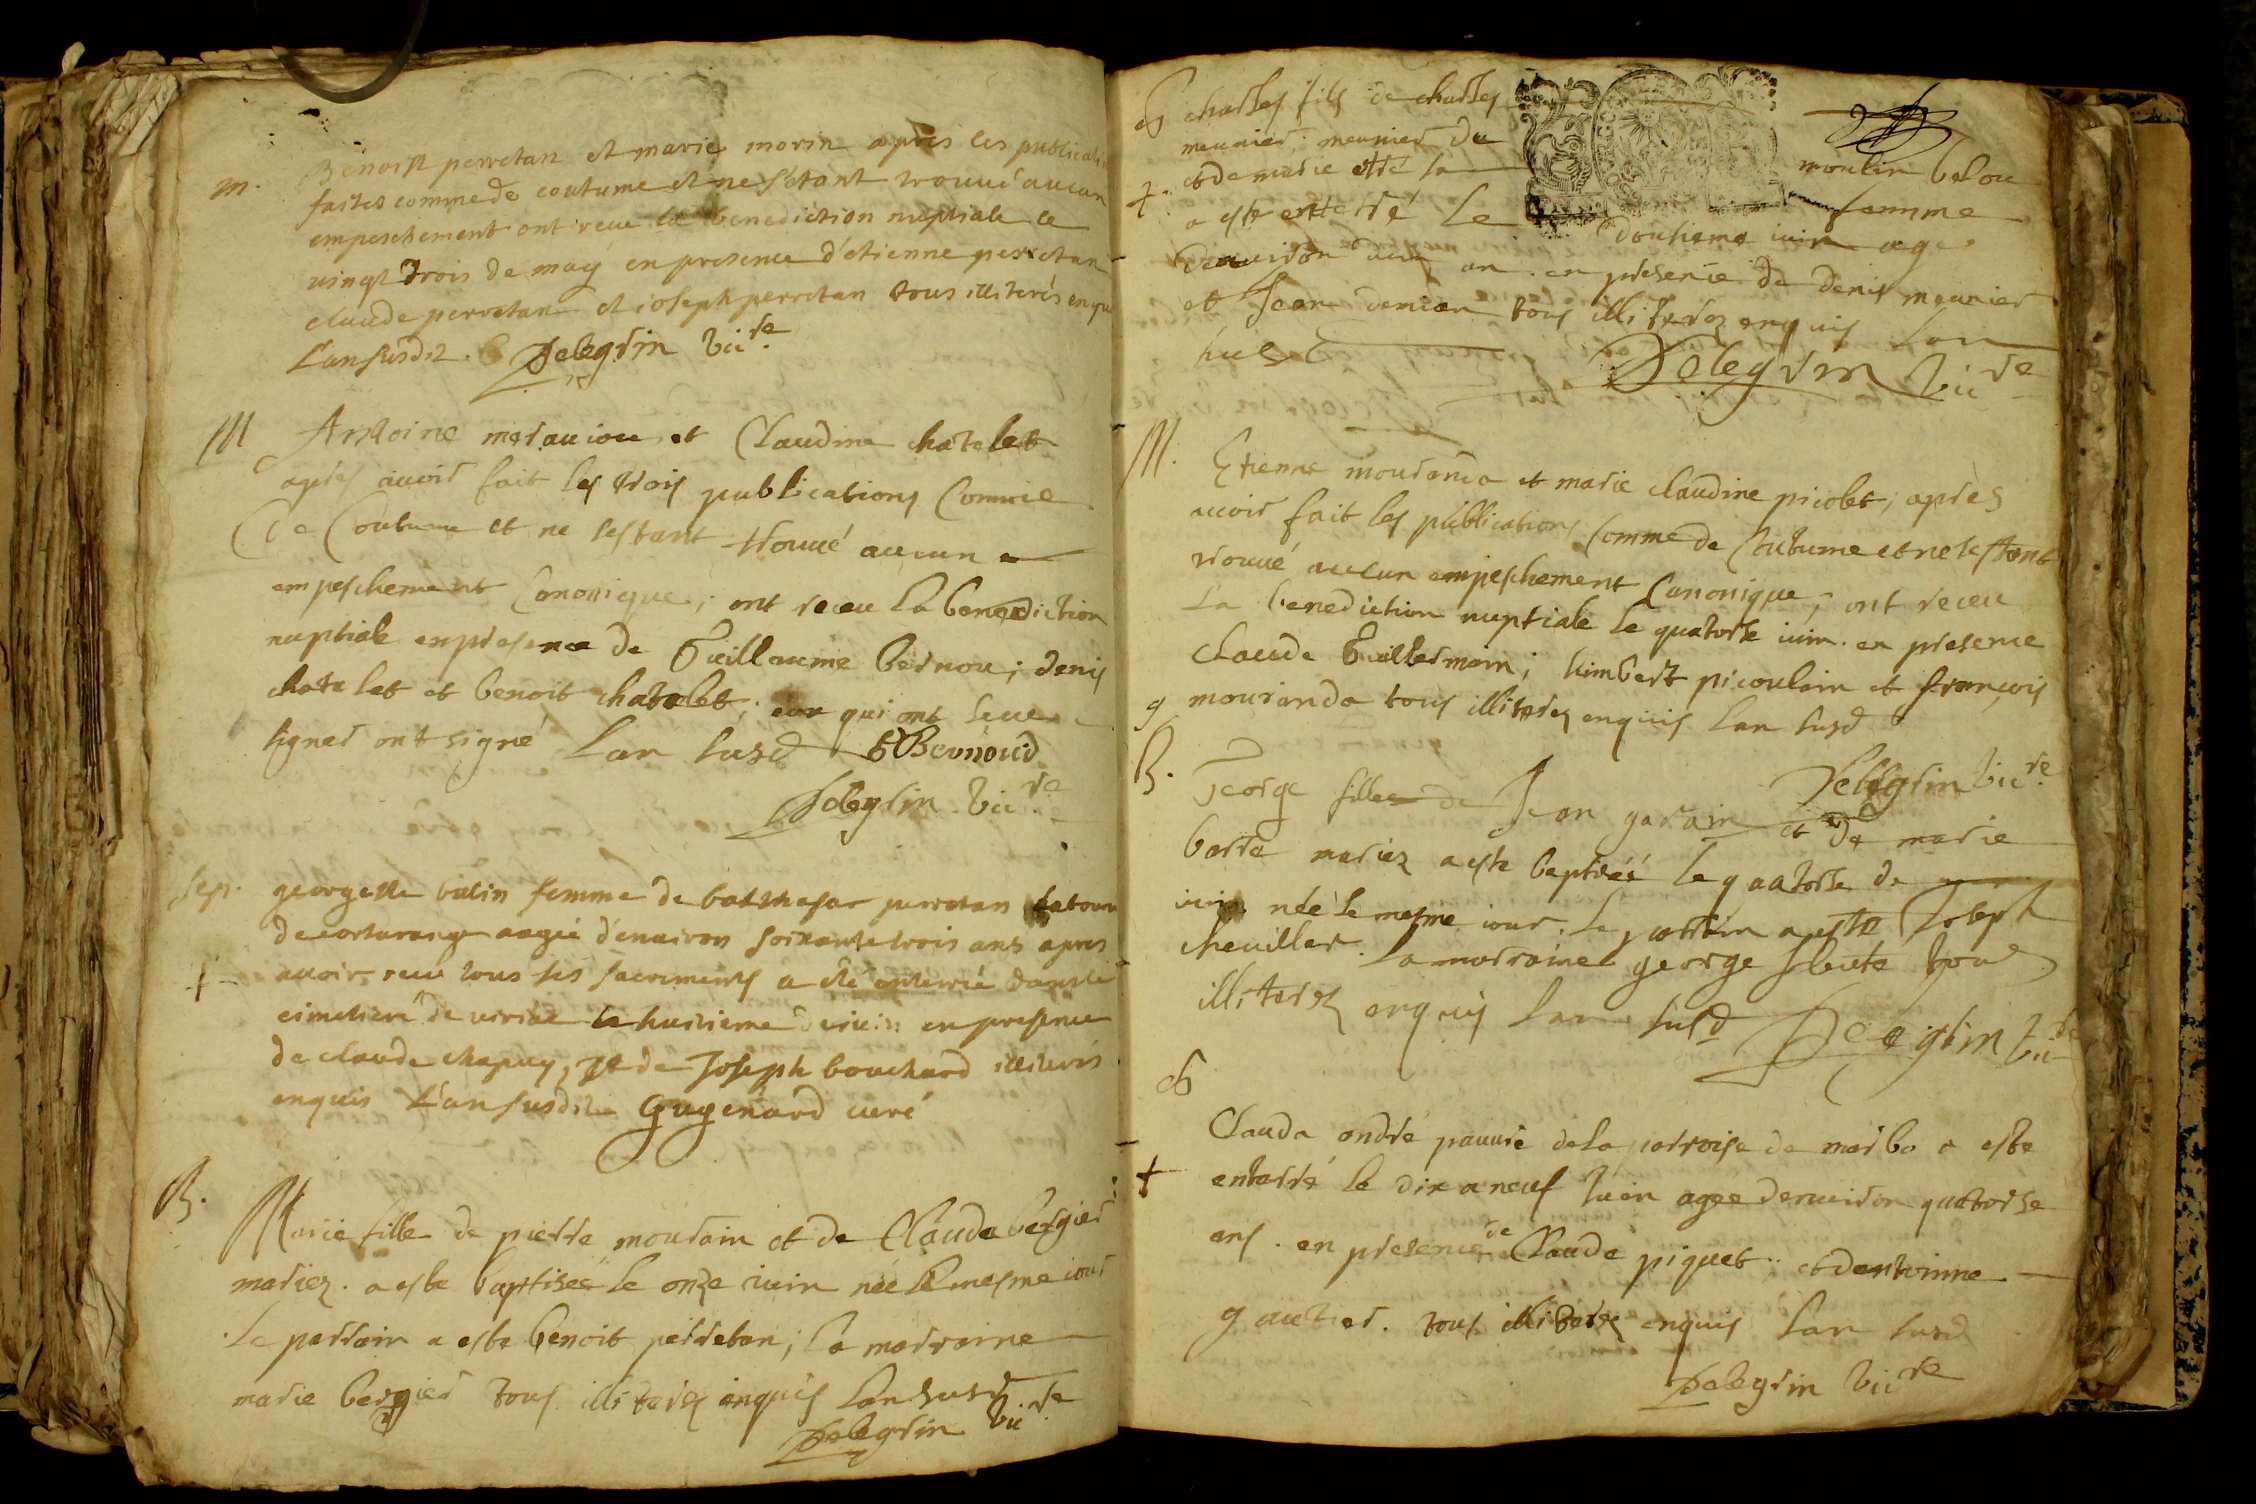 m. Benoist perretan et marie morin apres les publicati
faites comme de coutume et ne s'etant trouué aucun
empeschement ont receu la benediction nuptiale le
uingt trois de may en presence d'etienne perretan
claude perretan et ioseph perretan tous illiterés enqu
L'an susdit. Pelegrin vicre
M Antoine et Claudine chatelet
apres auoir fait les trois publications Comme
De Coutume et ne sestant trouué aucun
empeschement Canonique; ont receu la benediction
nuptiale en presence de Guillaume bernou; denis
chatelet et benoit chatelet; qui ont sceu
signer ont signé Lan susd GBernoud
Pelegrin vicre
sep. georgette balin femme de balthesar perretan
de aagée d'enuiron soixante trois ans apres
+ auoir receu tous ses sacrements a été enterrée dans le
cimetiere de le huitieme de iuin en presence
de claude chapuy, et de Joseph bouchard illiterés
enquis L'an susdit Guyenard curé
B. Marie fille de pierre mourain et de Claude bergier
mariez. a este baptisée le onze iuin née le mesme iour
Le parrain a este benoit perretan; la marraine
marie bergier tous illiterez enquis Lan susd
Pelegrin vicre
charles fils de charles
meunier; meunier du moulin
et de marie sa femme
+ a este enterré Le douzieme iuin agé
denuiron un an. en presence de denis meunier
et Jean tous illiterez enquis Lan
susd
Pelegrin vicre
M. Etienne mouranda et marie claudine picolet; après
auoir fait les publications Comme de Coutume et ne sestant
trouué aucun empeschement Canonique; ont receu
La benediction nuptiale le quatorse iuin. en presence
Claude Guillermain; humbert picoulain et françois
mouranda tous illiterez enquis Lan susd
Pelegrin vicre
B. George fille de Jean garain et de marie
barra mariez a este baptisée le quatorse de
iuin née le mesme iour. Le parrain a este Joseph
cheuiller. La marraine george tous
illiterez enquis Lan susd Pelegrin vicre
Claude andré pauure de la parroise de marbo a este
+ enterré le dix neuf iuin agée denuiron quatorse
ans. en presence de Claude piquet et dantoinne
gautier. tous illiterez enquis Lan susd
Pelegrin vicre